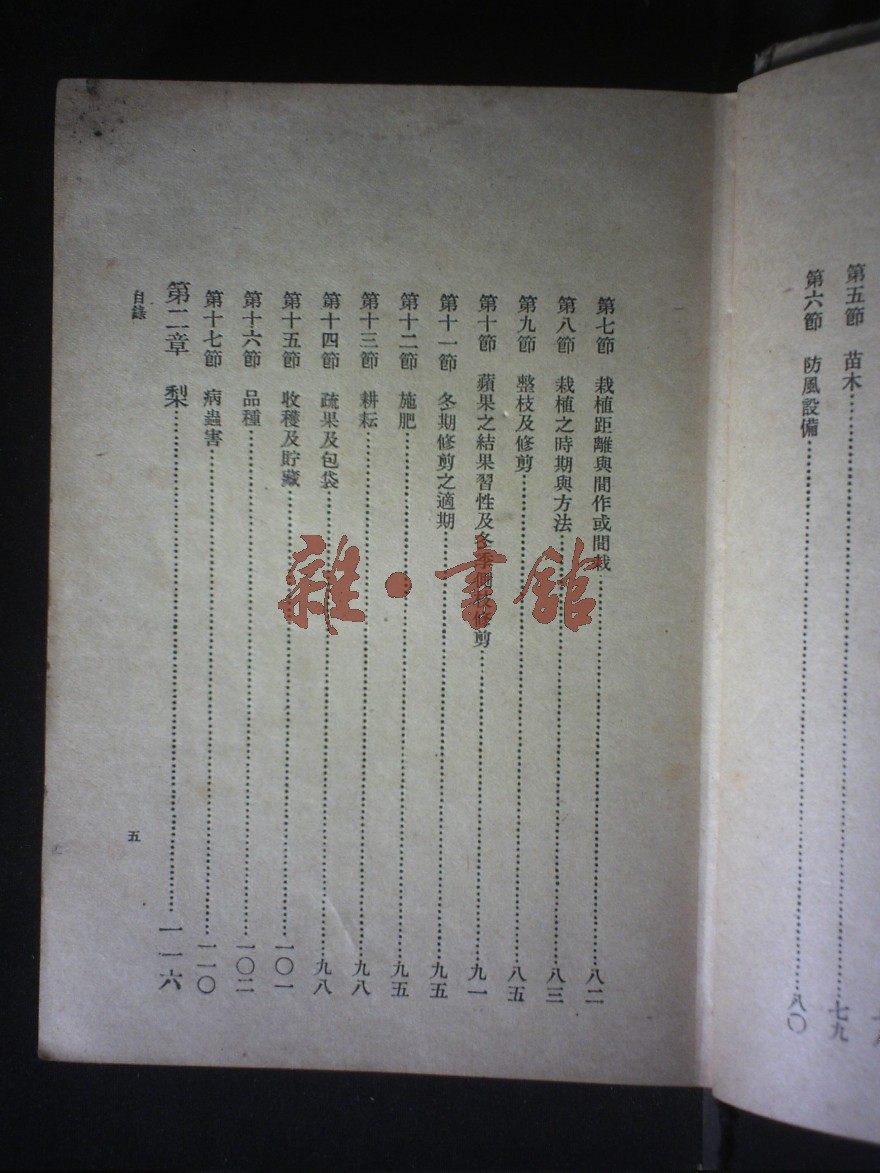 第五節 苗木……七九
第六節 防風設備……八〇
第七節 栽植距離與間作或間栽……八二
第八節 栽植之時期與方法……八三
第九節 整枝及修剪……八五
第十節 蘋果之結果習性及冬季側枝修剪……九一
第十一節 冬期修剪之適期……九五
第十二節 施肥……九五
第十三節 耕耘……九八
第十四節 疏果及包袋……九八
第十五節 收穫及貯藏……一〇一
第十六節 品種……一〇二
第十七節 病蟲害……一一〇
第二章 梨……一一六
目錄
五
雜·書館